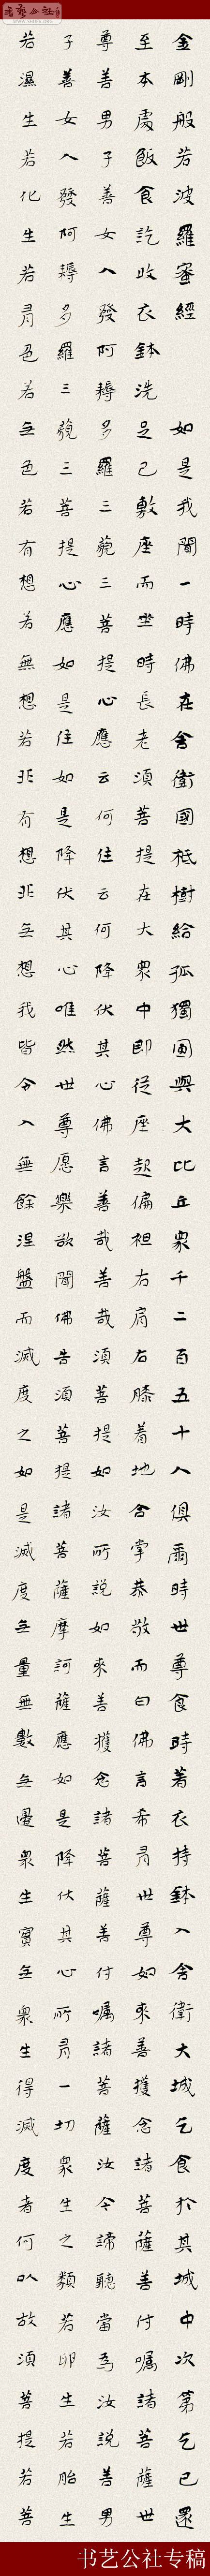 金剛般若波羅蜜經 如是我聞一時佛在舍衛國祗樹給孤獨園與大比丘眾千二百五十人俱爾時世尊食時著衣持鉢入舍衛大城乞食於其城中次第乞已還
至本處飯食訖收衣鉢洗足已敷座而坐時長老須菩提在大眾中即從座起偏袒右肩右膝着地合掌恭敬而白佛言希有世尊如來善護念諸菩薩善付囑諸菩薩世
尊善男子善女人發阿耨多羅三藐三菩提心應云何住云何降伏其心佛言善哉善哉須菩提如汝所說如來善護念諸菩薩善付囑諸菩薩汝今諦聽當為汝說善男
子善女人發阿耨多羅三藐三菩提心應如是住如是降伏其心唯然世尊愿樂欲聞佛告須菩提諸菩薩摩訶薩應如是降伏其心所有一切眾生之類若卵生若胎生
若濕生若化生若有色若無色若有想若無想若非有想非無想我皆令入無餘涅盤而滅度之如是滅度無量無數無邊眾生實無眾生得滅度者何以故須菩提若菩
书艺公社专稿